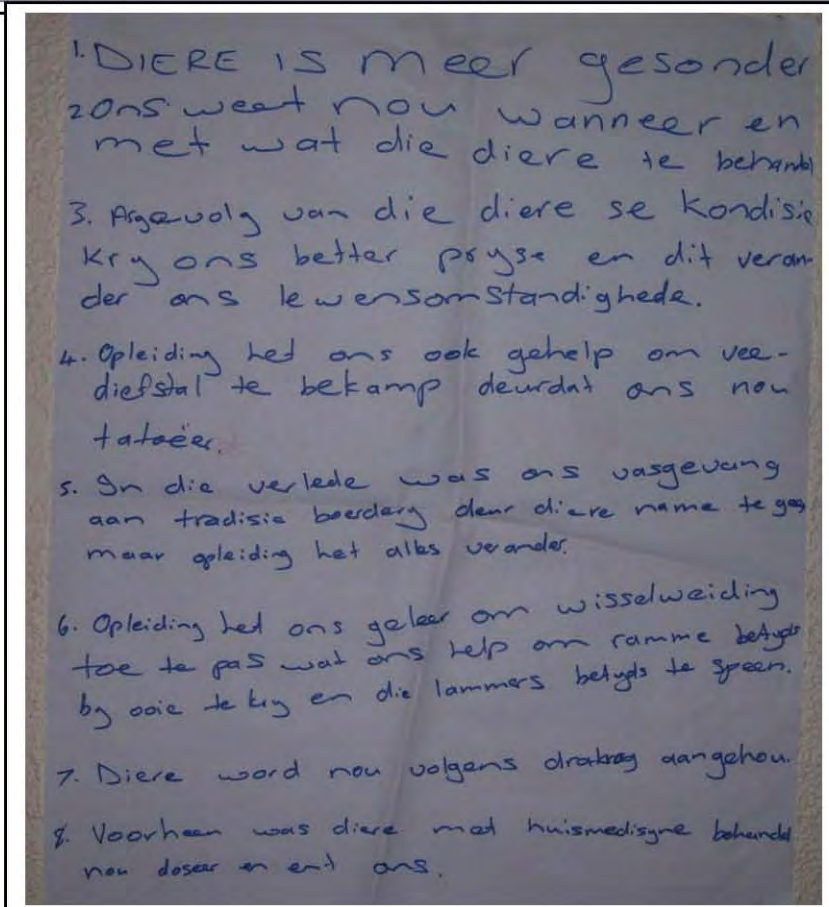 1. DIERE IS meer gesonder
2 Ons weet nou wanneer en
met wat die diere te behandel
3. Asgevolg van die diere se kondisie
kry ons better pryse en dit veran-
der ons lewensomstandighede.
4. Opleiding het ons ook gehelp om vee-
diefstal te bekamp deurdat ons nou
tatoëer.
5. In die verlede was ons vasgevang
aan tradisie boerdery deur diere name te gee
maar opleiding het alles verander.
6. Opleiding het ons geleer om wisselweiding
toe te pas wat ons help om ramme betyds
by ooie te kry en die lammers betyds te speen.
7. Diere word nou volgens drakrag aangehou.
8. Voorheen was diere met huismedisyne behandel
nou doseer en ent ons.